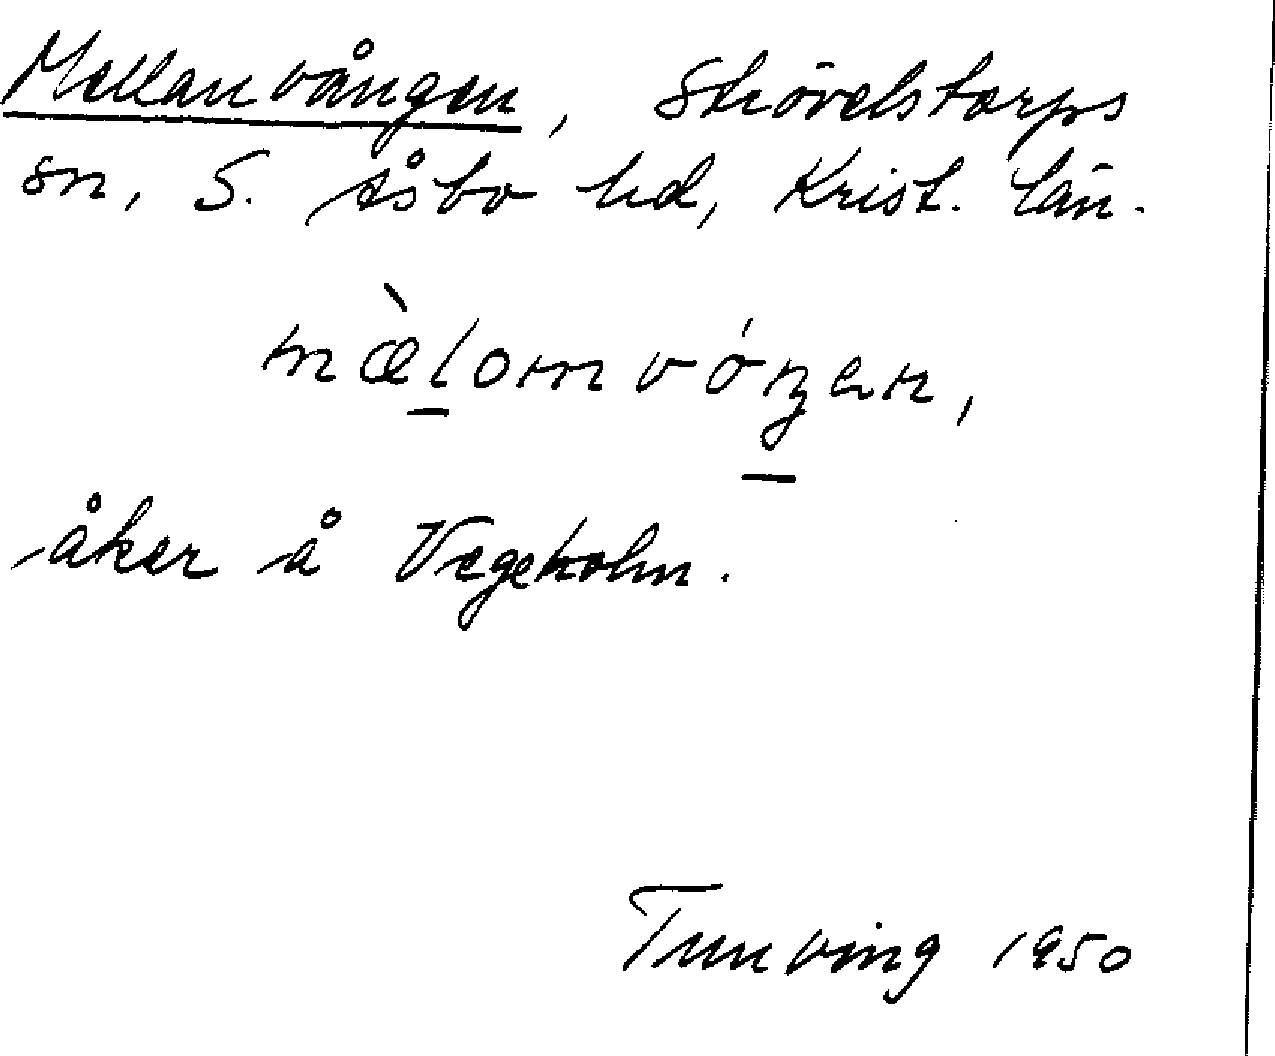 Mellanvången, Strövelstorps
sn, S. Åsbo hd, Krist. län.
mæ̀lomvóŋen,
åker å Vegeholm.
Tunving 1950